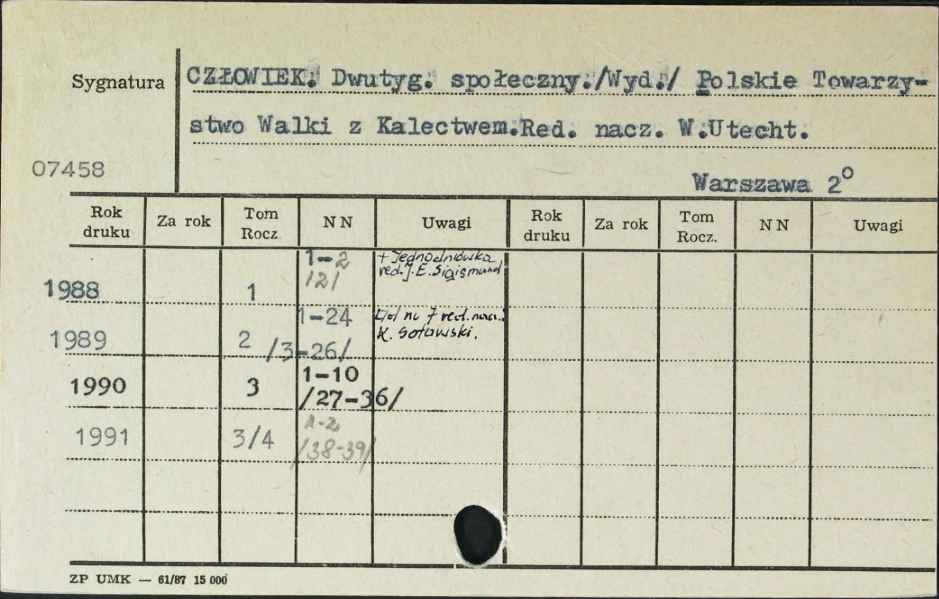 Sygnatura CZŁOWIEK. Dwutyg. społeczny./Wyd./ Polskie Towarzy-
stwo Walki z Kalectwem.Red. nacz. W.Utecht.
07458
Warszawa 2°
Rok druku Za rok Tom Rocz. NN Uwagi Rok druku Za rok Tom Rocz. NN Uwagi
1988 1 1-2 /2/ + Jednodniówka red. J. E. Sigismund
1989 2 1-24 /3-26/ Od nr 7 red. nacz. K.
1990 3 1-10 /27-36/
1991 3/4 1-2 /38-39/
ZP UMK — 61/87 15 000